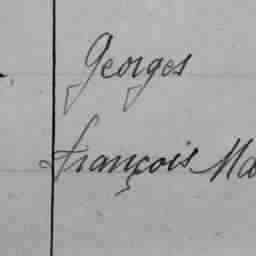 Georges
françois Ma